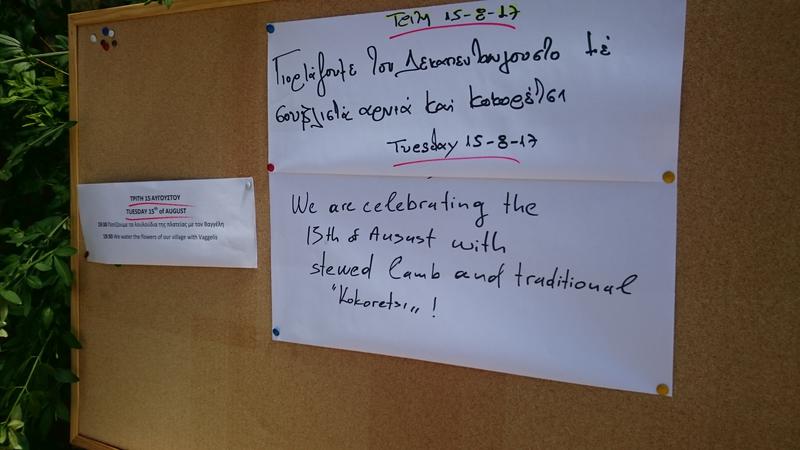 Τρίτη 15-8-17
Γιορτάζουμε τον Δεκαπενταύγουστο με
σουβλιστά αρνιά και κοκορέτσι
Tuesday 15-8-17
We are celebrating the
15th of August with
stewed lamb and traditional
"Kokoretsi„ !
ΤΡΙΤΗ 15 ΑΥΓΟΥΣΤΟΥ
TUESDAY 15th of AUGUST
Ποτίζουμε τα λουλούδια της πλατείας με τον Βαγγέλη
We water the flowers of our village with Vaggelis